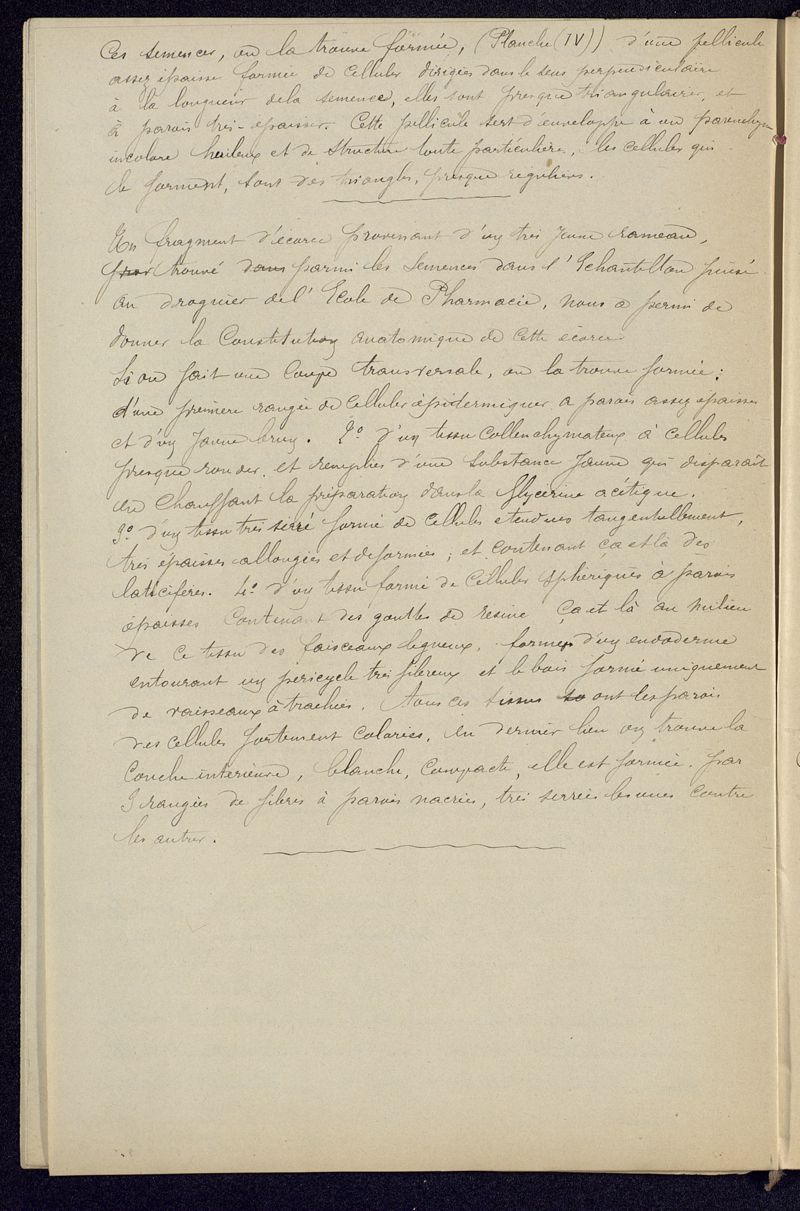 Ces semences, on la trouve formée, (Planche (IV)) d'une pellicule
assez épaisse formée de cellules dirigées dans le sens perpendiculaire
à la longueur de la semence, elles sont presque triangulaires, et
à parois très-épaisses. Cette pellicule sert d'enveloppe à un parenchyme
incolore huileux et de structure toute particulière, les cellules qui
le forment, sont des triangles, presque réguliers.
Un fragment d'écorce provenant d'un très jeune rameau,
trouvé dans parmi les semences dans l'Echantillon puisé
au droguier de l'Ecole de Pharmacie, nous a permi de
donner la Constitution anatomique de cette écorce
Si on fait une Coupe transversale, on la trouve formée:
d'une première rangée de cellules épidermiques a parois assez épaisses
et d'un jaune brun. 2º d'un tissu collenchymateux à cellules
presque rondes, et remplies d'une substance jaune qui disparaît
en chauffant la préparation dans la Glycérine acétique.
3º d'un tissu très serré formé de cellules étendues tangentiellement,
très épaisses allongées et déformées; et contenant ça et là des
laticifères. 4º d'un tissu formé de cellules sphériques à parois
épaisses contenant des gouttes de resine ça et là au milieu
de ce tissu des faisceaux ligneux, formés d'un endoderme
entourant un péricycle très fibreux et le bois formé uniquement
de vaisseaux à trachées. Tous ces tissus ont les parois
des cellules fortement colorées, en dernier lieu on trouve la
Couche intérieure, blanche, compacte, elle est formée. par
3 rangées de fibres à parois nacrées, très serrées les unes contre
les autres.